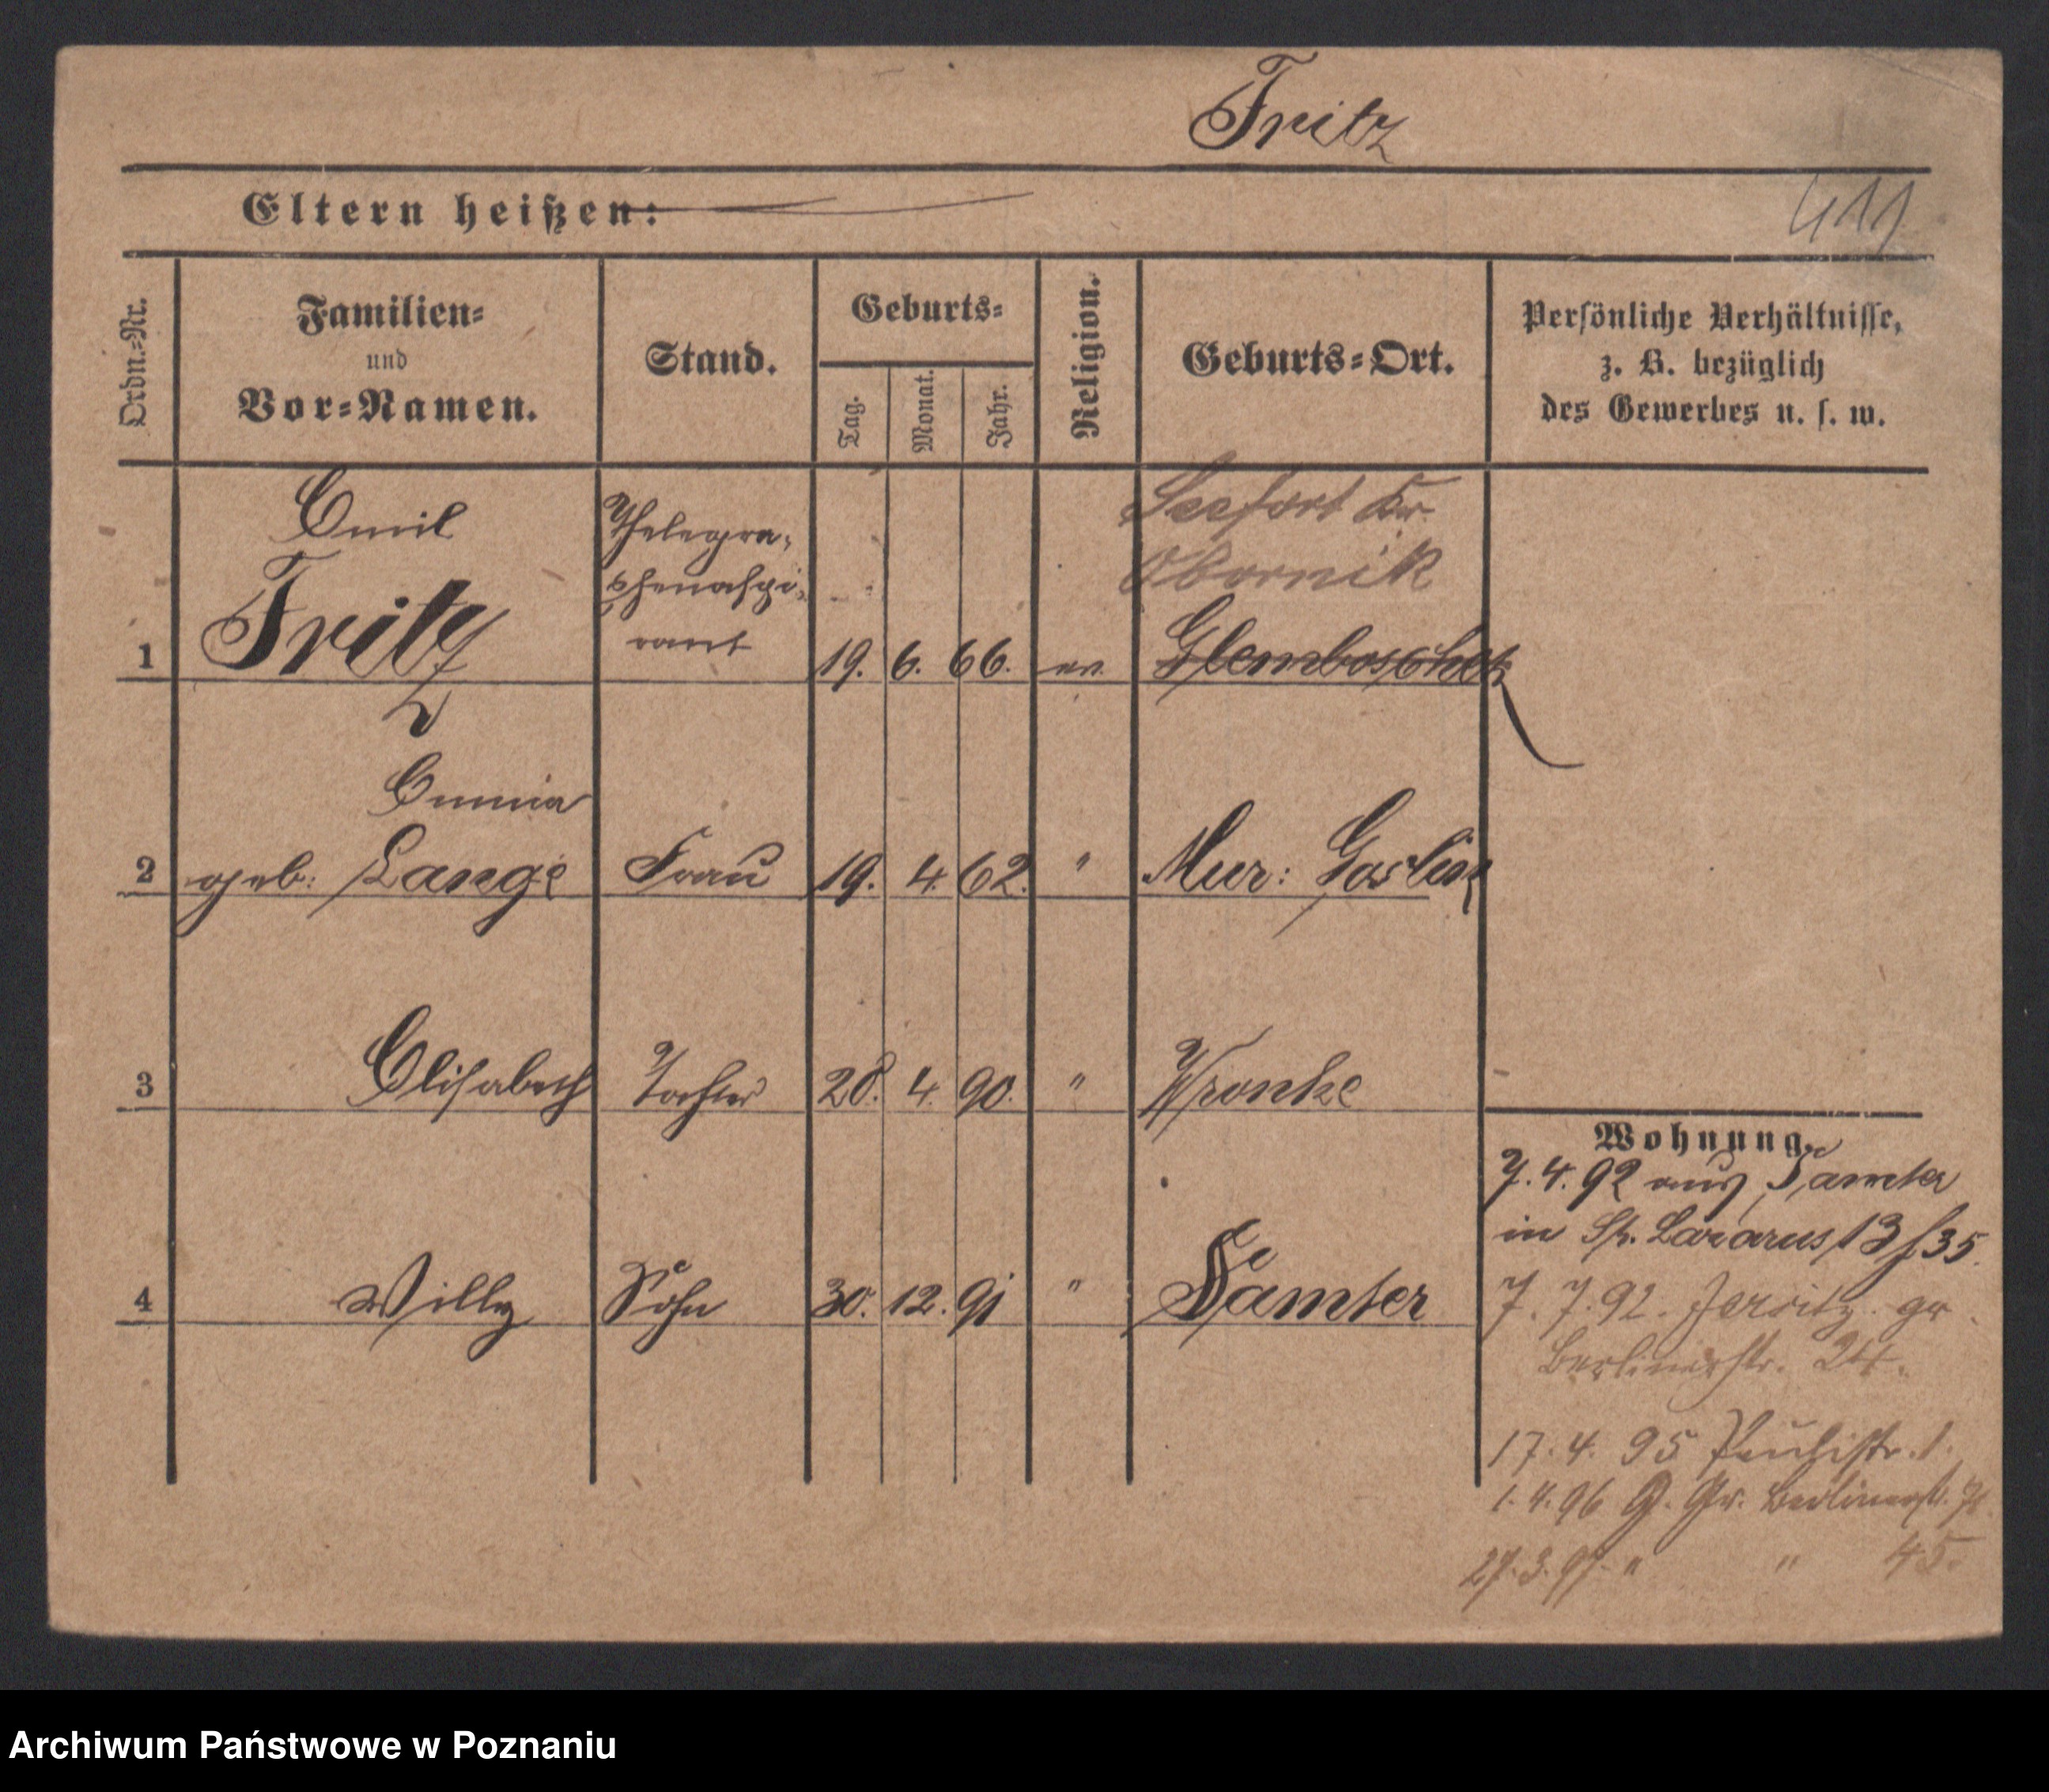 Fritz
Eltern heißen:
411
Ordn.-Nr.
Familien-
und
Vor-Namen.
Stand.
Geburts-
Tag.
Monat.
Jahr.
Religion.
Geburts-Ort.
Persönliche Verhältnisse,
z. B. bezüglich
des Gewerbes u. s. w.
Emil
Thelegra-
Seefort Kr.
phenaspi-
Obornik
1 Fritz rant 19. 6. 66. ev. Glemboschek
Emma
2 geb: Lange Frau 19. 4. 62. " Mur: Goslin
3 Elisabeth Tochter 28. 4. 90. " Wronke
Wohnung.
7. 4. 92 aus Samter
in St. Lazarus 13 / 35.
4 Willy Sohn 30. 12. 91 " Samter
7. 7. 92. Jersitz. gr.
Berlinerstr. 24.
17. 4. 95 1.
1. 4. 96 G. Gr. Berlinerstr.
27. 3. 97. " " 45.
Archiwum Państwowe w Poznaniu